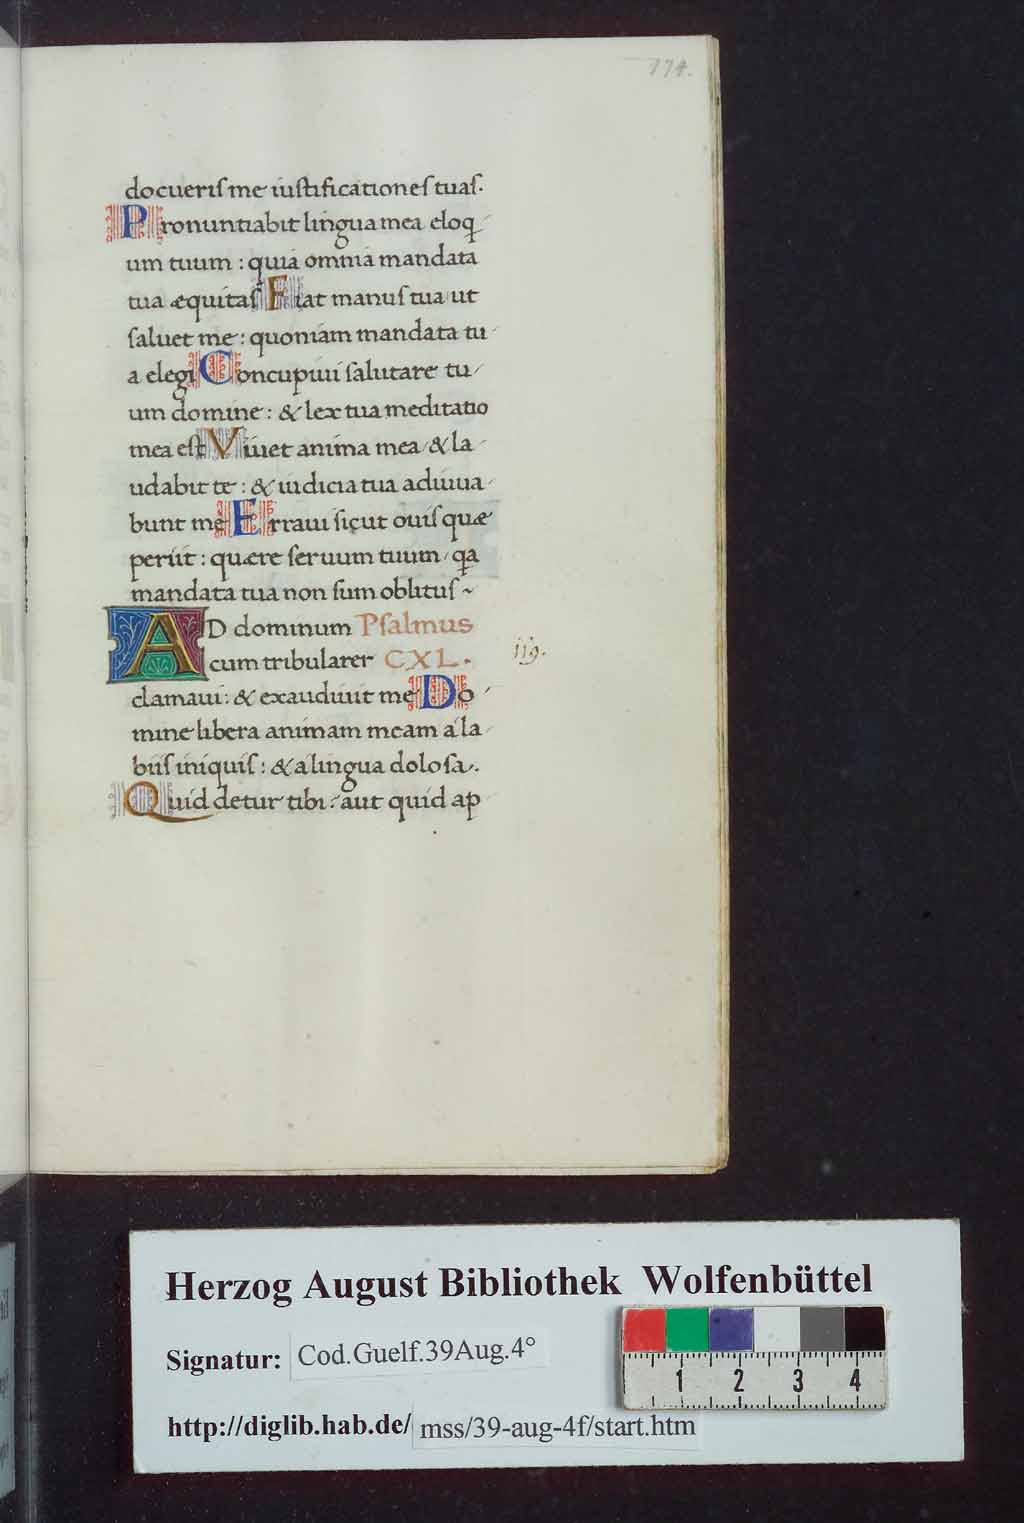 174.
docueris me iustificationes tuas.
Pronuntiabit lingua mea eloq
um tuum : quia omnia mandata
tua æquitas Fiat manus tua ut
saluet me : quoniam mandata tu
a elegi Concupiui salutare tu
um domine : & lex tua meditatio
mea est Viuet anima mea & la
udabit te : & iudicia tua adiuua
bunt me Erraui sicut ouis quæ
periit : quære seruum tuum qa
mandata tua non sum oblitus ~
AD dominum Psalmus
cum tribularer CXL.
119.
clamaui : & exaudiuit me Do
mine libera animam meam a la
biis iniquis : & a lingua dolosa .
Quid detur tibi : aut quid ap
Herzog August Bibliothek Wolfenbüttel
Signatur: Cod.Guelf.39Aug.4°
1 2 3 4
http://diglib.hab.de/ mss/39-aug-4f/start.htm